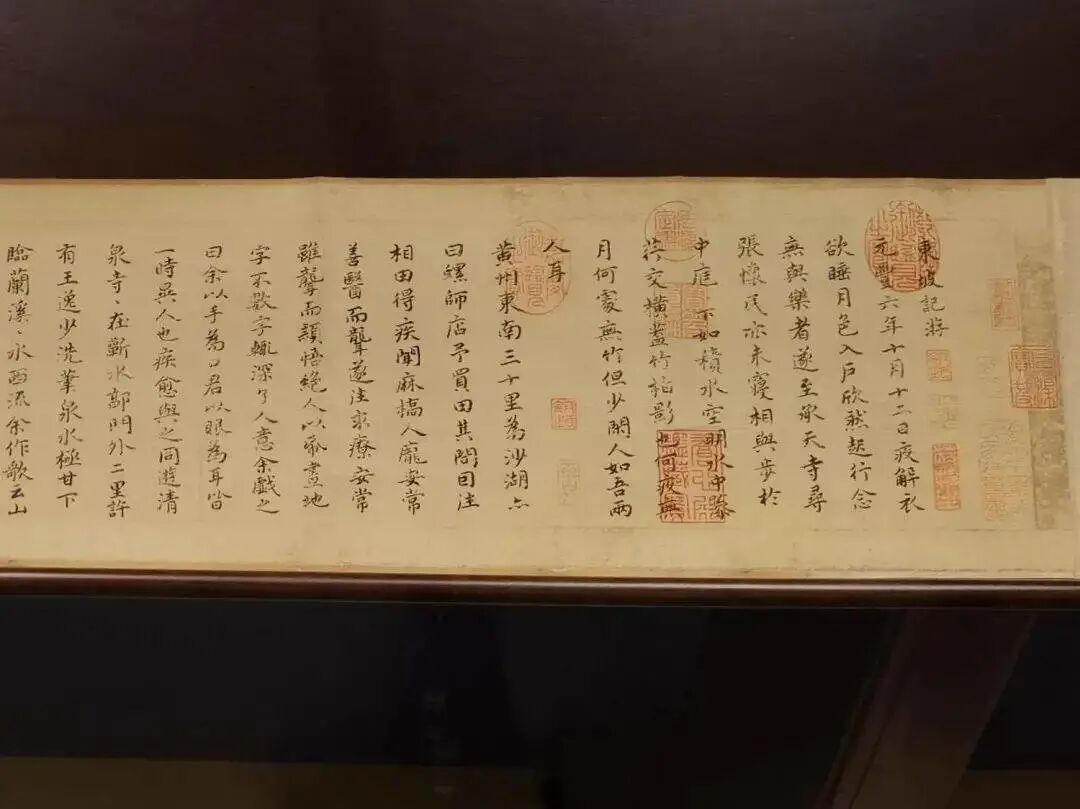 東坡記游
元豐六年十月十二日夜解衣
欲睡月色入戶欣然起行念
無與樂者遂至承天寺尋
張懷民亦未寢相與步於
中庭下如積水空明水中藻
荇交橫蓋竹柏影也何夜無
月何處無竹但少閑人如吾兩
人耳
黄州東南三十里為沙湖亦
曰螺師店予買田其間因往
相田得疾聞麻橋人龐安常
善醫而聾遂往求療安常
雖聾而穎悟絕人以紙畫地
字不數字輒深了人意余戲之
曰余以手為口君以眼為耳皆
一時異人也疾愈與之同遊清
泉寺〻在蘄水郭門外二里許
有王逸少洗筆泉水極甘下
臨蘭溪〻水西流余作歌云山